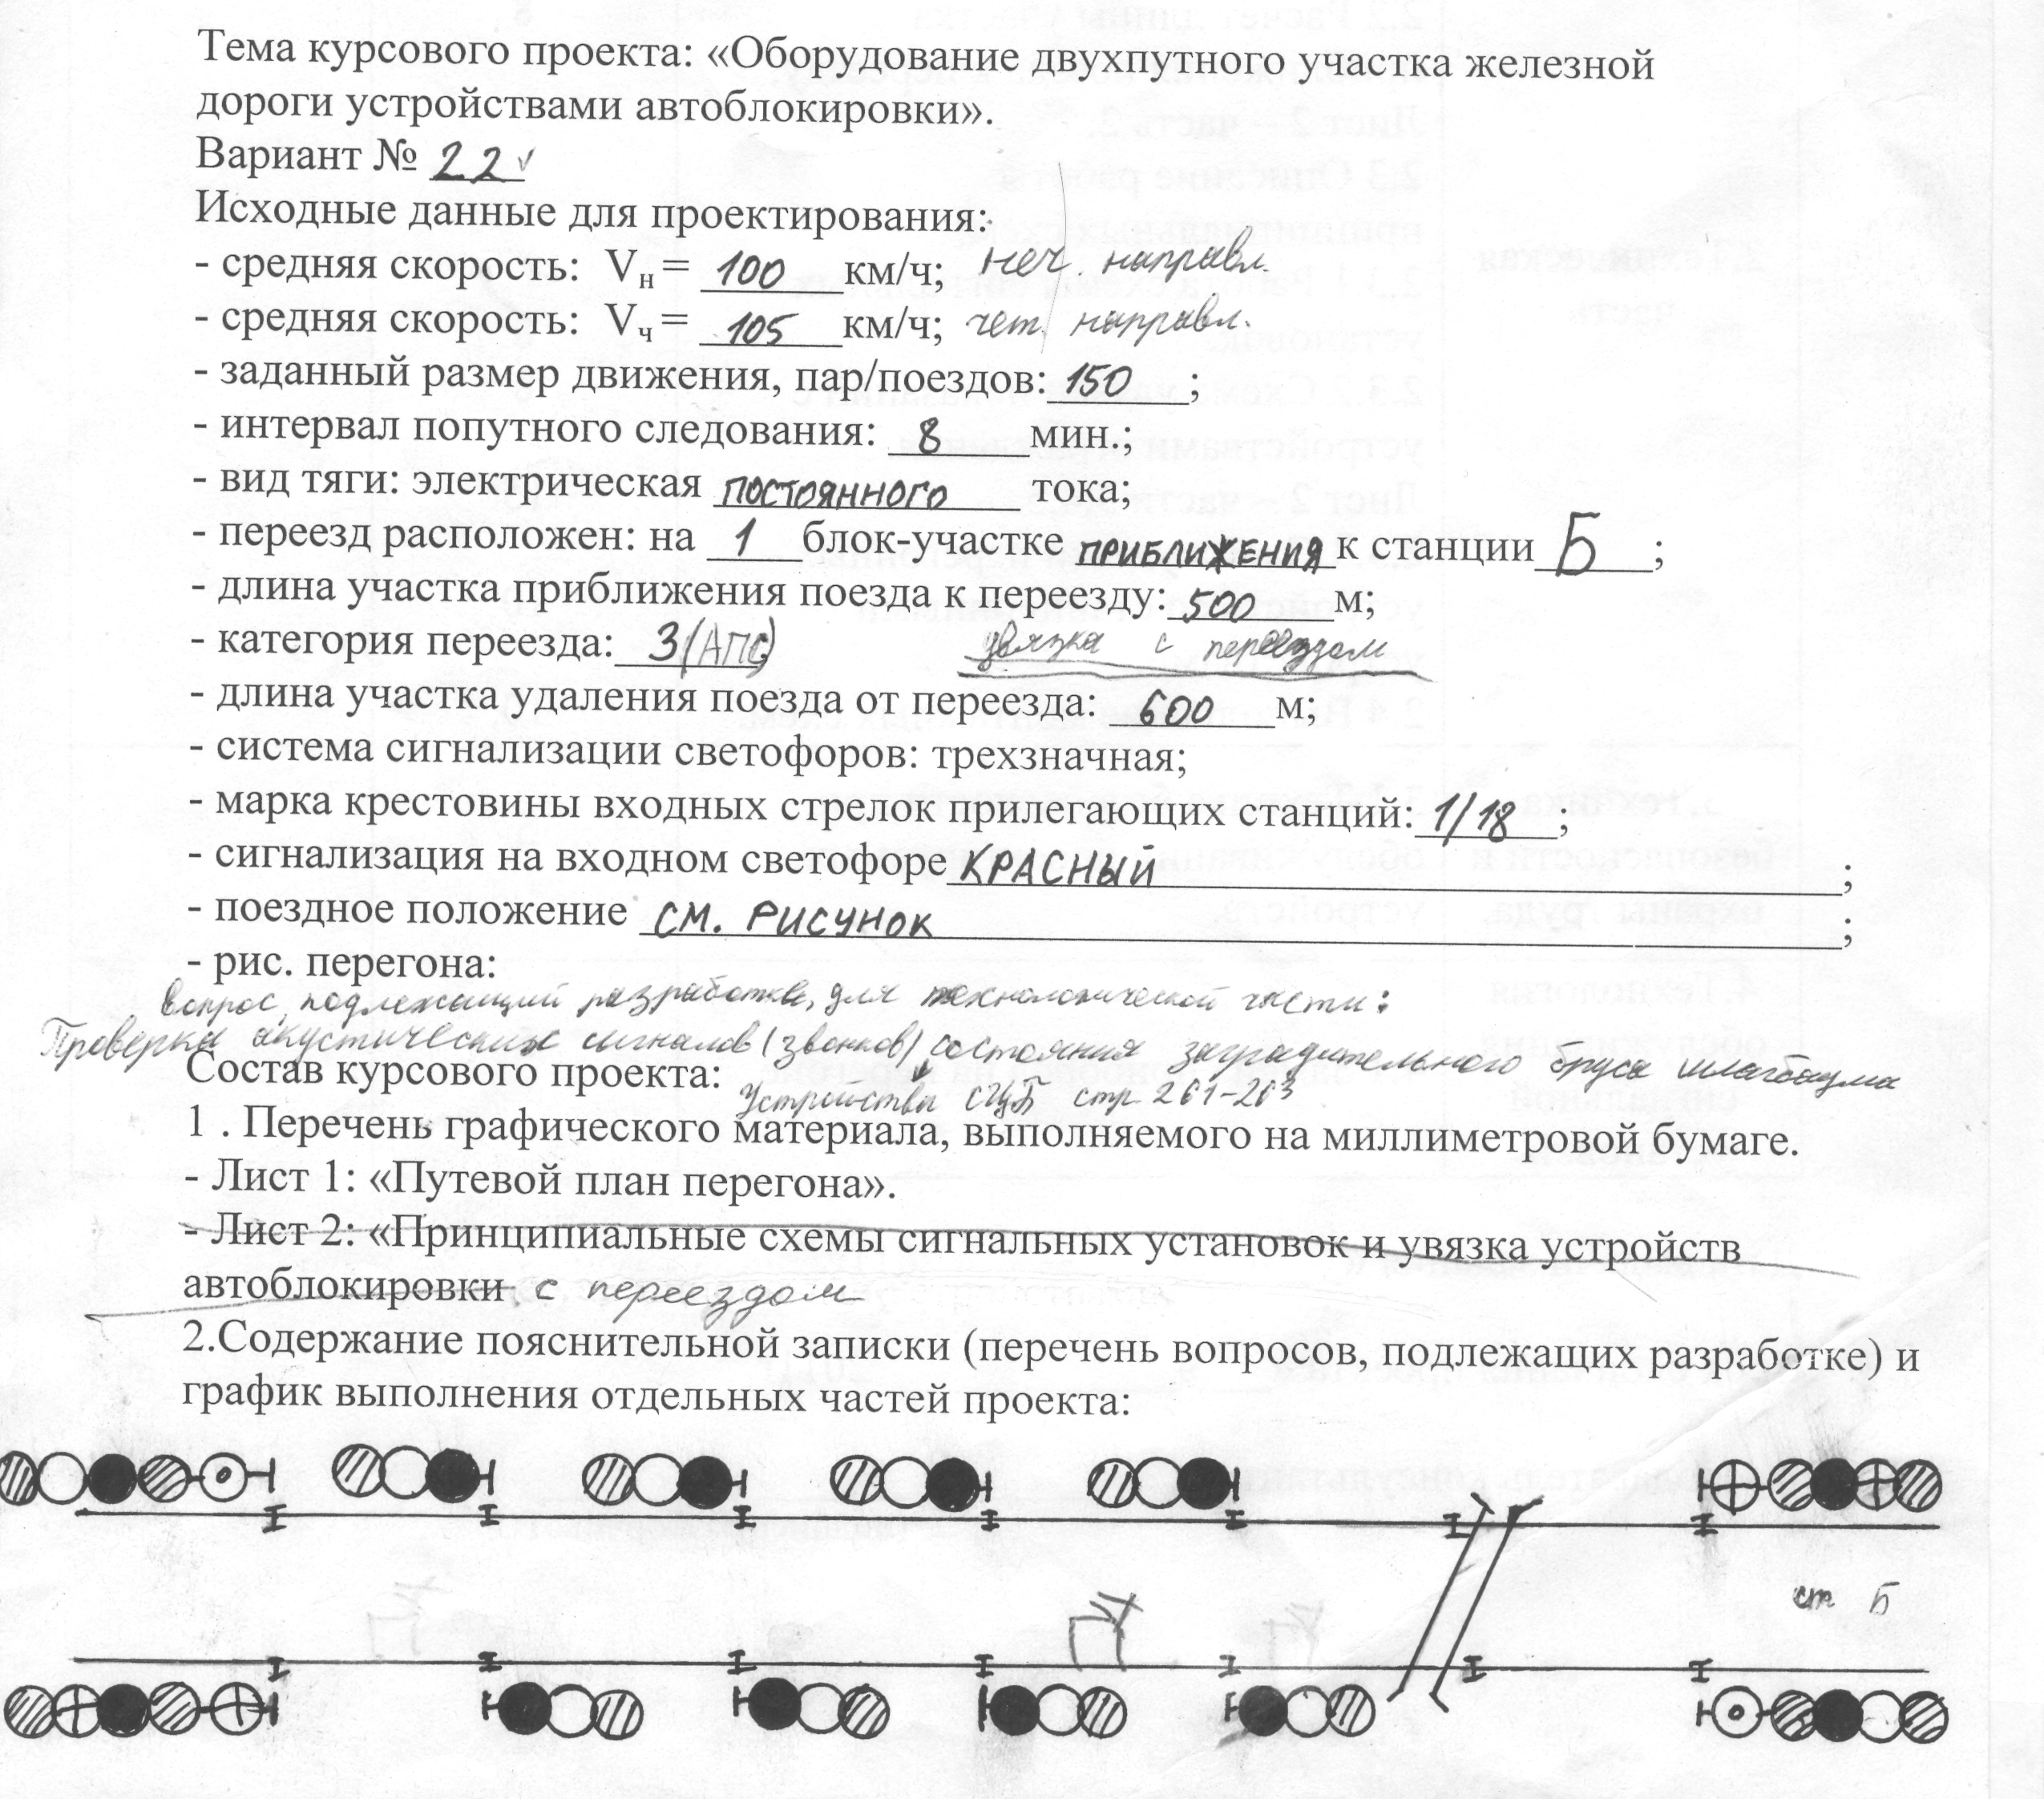 Тема курсового проекта: «Оборудование двухпутного участка железной
дороги устройствами автоблокировки».
Вариант № 22
Исходные данные для проектирования:
- средняя скорость: Vн = 100 км/ч; неч. направл.
- средняя скорость: Vч = 105 км/ч; чет. направл.
- заданный размер движения, пар/поездов: 150 ;
- интервал попутного следования: 8 мин.;
- вид тяги: электрическая ПОСТОЯННОГО тока;
- переезд расположен: на 1 блок-участке ПРИБЛИЖЕНИЯ к станции Б ;
- длина участка приближения поезда к переезду: 500 м;
- категория переезда: 3 (АПС) увязка с переездом
- длина участка удаления поезда от переезда: 600 м;
- система сигнализации светофоров: трехзначная;
- марка крестовины входных стрелок прилегающих станций: 1/18 ;
- сигнализация на входном светофоре КРАСНЫЙ ;
- поездное положение СМ. РИСУНОК ;
- рис. перегона:
Вопрос, подлежащий разработке, для технологической части:
Проверка акустических сигналов (звонков) состояния заградительного бруса шлагбаума
Состав курсового проекта:
Устройства СЦБ стр. 261-263
1 . Перечень графического материала, выполняемого на миллиметровой бумаге.
- Лист 1: «Путевой план перегона».
- Лист 2: «Принципиальные схемы сигнальных установок и увязка устройств
автоблокировки с переездом
2.Содержание пояснительной записки (перечень вопросов, подлежащих разработке) и
график выполнения отдельных частей проекта:
ст Б